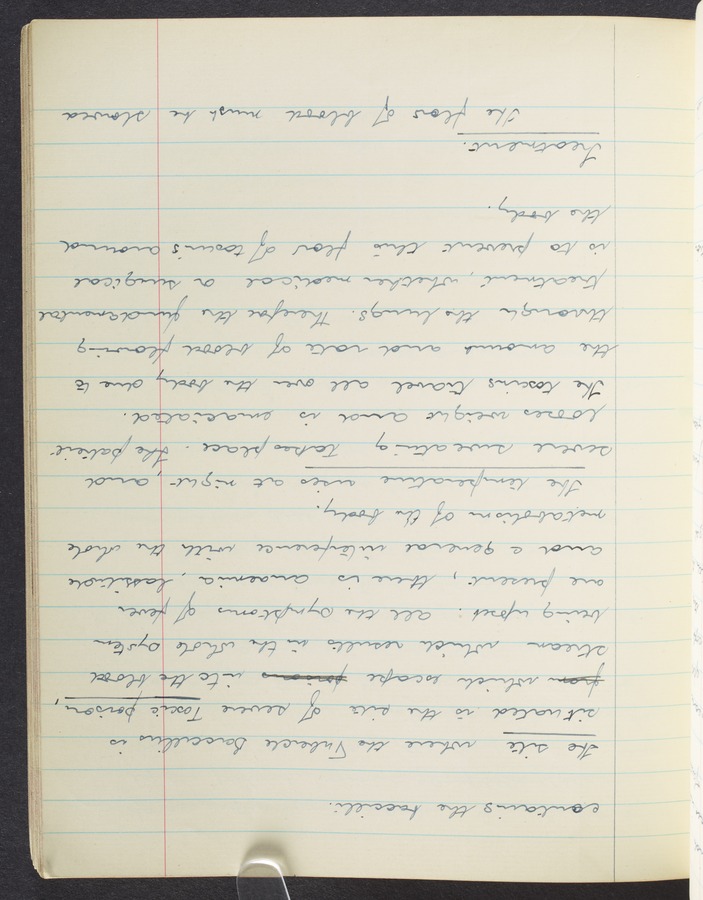 contains the baccilli.
The site where the Tubercle Baccillus is
situated is the site of severe Toxic poison,
from which escape poisons into the blood
stream which results in the whole system
being upset: all the symptoms of fever
are present; there is anaemia, lassitude
and a general interference with the whole
metabolism of the body.
The temperature rises at night, and
severe sweating takes place. The patient
looses weight and is emaciated.
The toxins travel all over the body due to
the amount and rate of blood flowing
through the lungs. Therefor the fundamental
treatment, whether medical or surgical
is to prevent this flow of toxins around
the body.
Treatment.
The flow of blood must be slowed